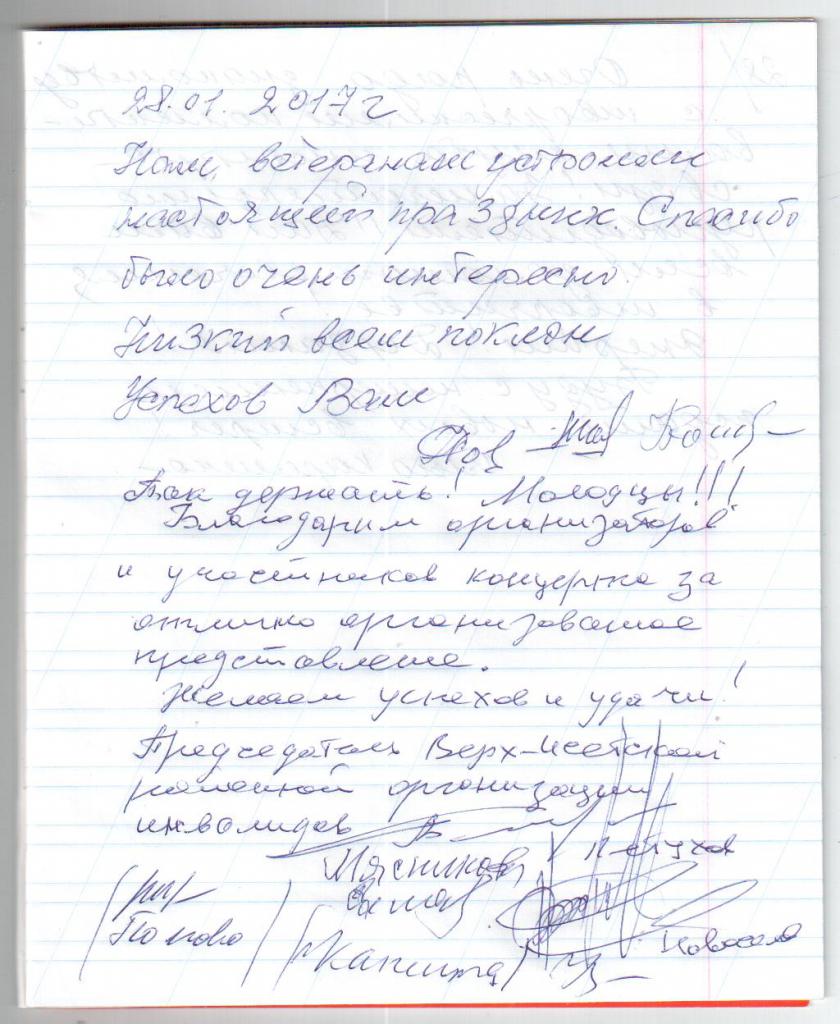 28.01.2017г
Нам, ветеранам устроили
настоящий праздник. Спасибо
было очень интересно.
Низкий всем поклон
Успехов Вам
Так держать! Молодцы!!!
Благодарим организаторов
и участников концерта за
отлично организованое
представление.
Желаем успехов и удачи!
Председатель Верх-Исетской
районной организации
инвалидов
Мясников
Попова